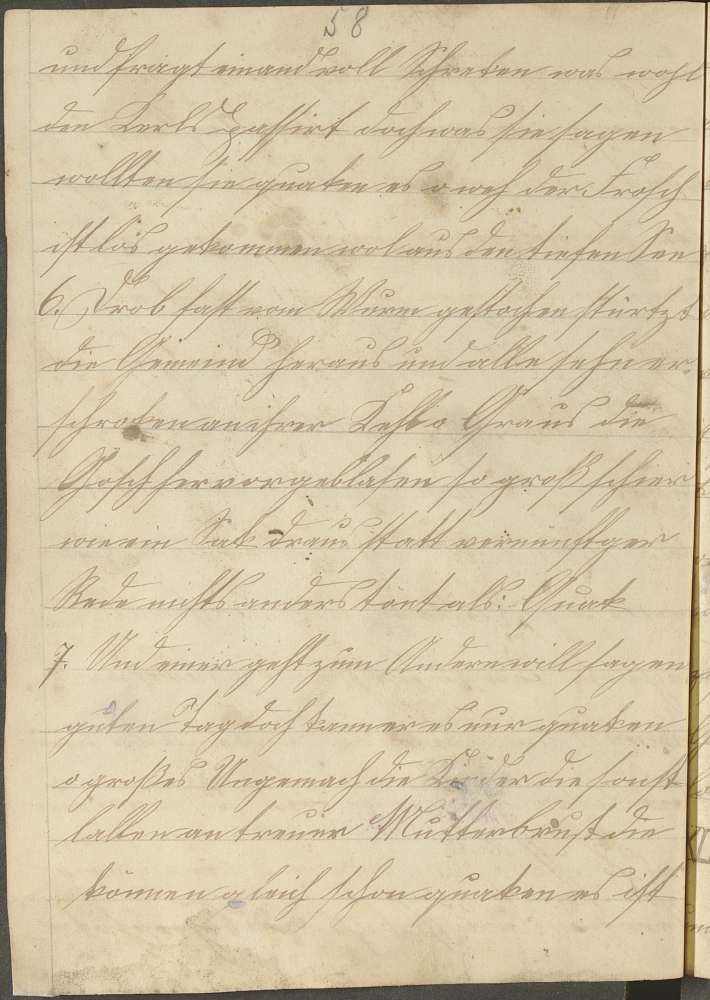 58
und fragt einand voll Schreken was wohl
den Kerls passirt doch was sie sagen
wollten sie quaken es o weh der Frosch
ist los gekommen wol aus den tiefen See
6. Drob fast vom Wurm gestochen stürtzt
die Gemeind heraus und alle sehn er¬
schroken an ihrer Kehl o Graus die
Gosch hervorgeblasen so groß schier
wie ein Sak draus statt vernünftger
Rede nichts anders tönt als: Quak
7. Und einer geht zum Andern will sagen
guten Tag doch kann er es nur quaken
o großes Ungemach die Kinder die sonst
lallen an treuer Mutterbrust die
können gleich schon quaken es ist